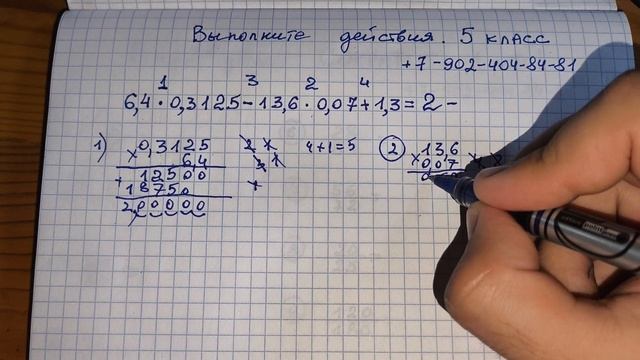 Выполните действия. 5 класс
+7-902-404-84-81
1 3 2 4
6,4 · 0,3125 - 13,6 · 0,07 + 1,3 = 2 -
1) 0,3125
× 6,4
+ 12500
18750
2,00000
4+1=5
2 13,6
× 0,07